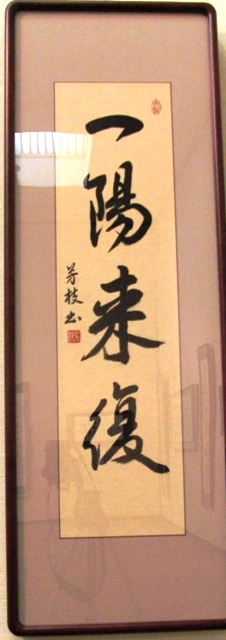 一陽来復
芳枝書